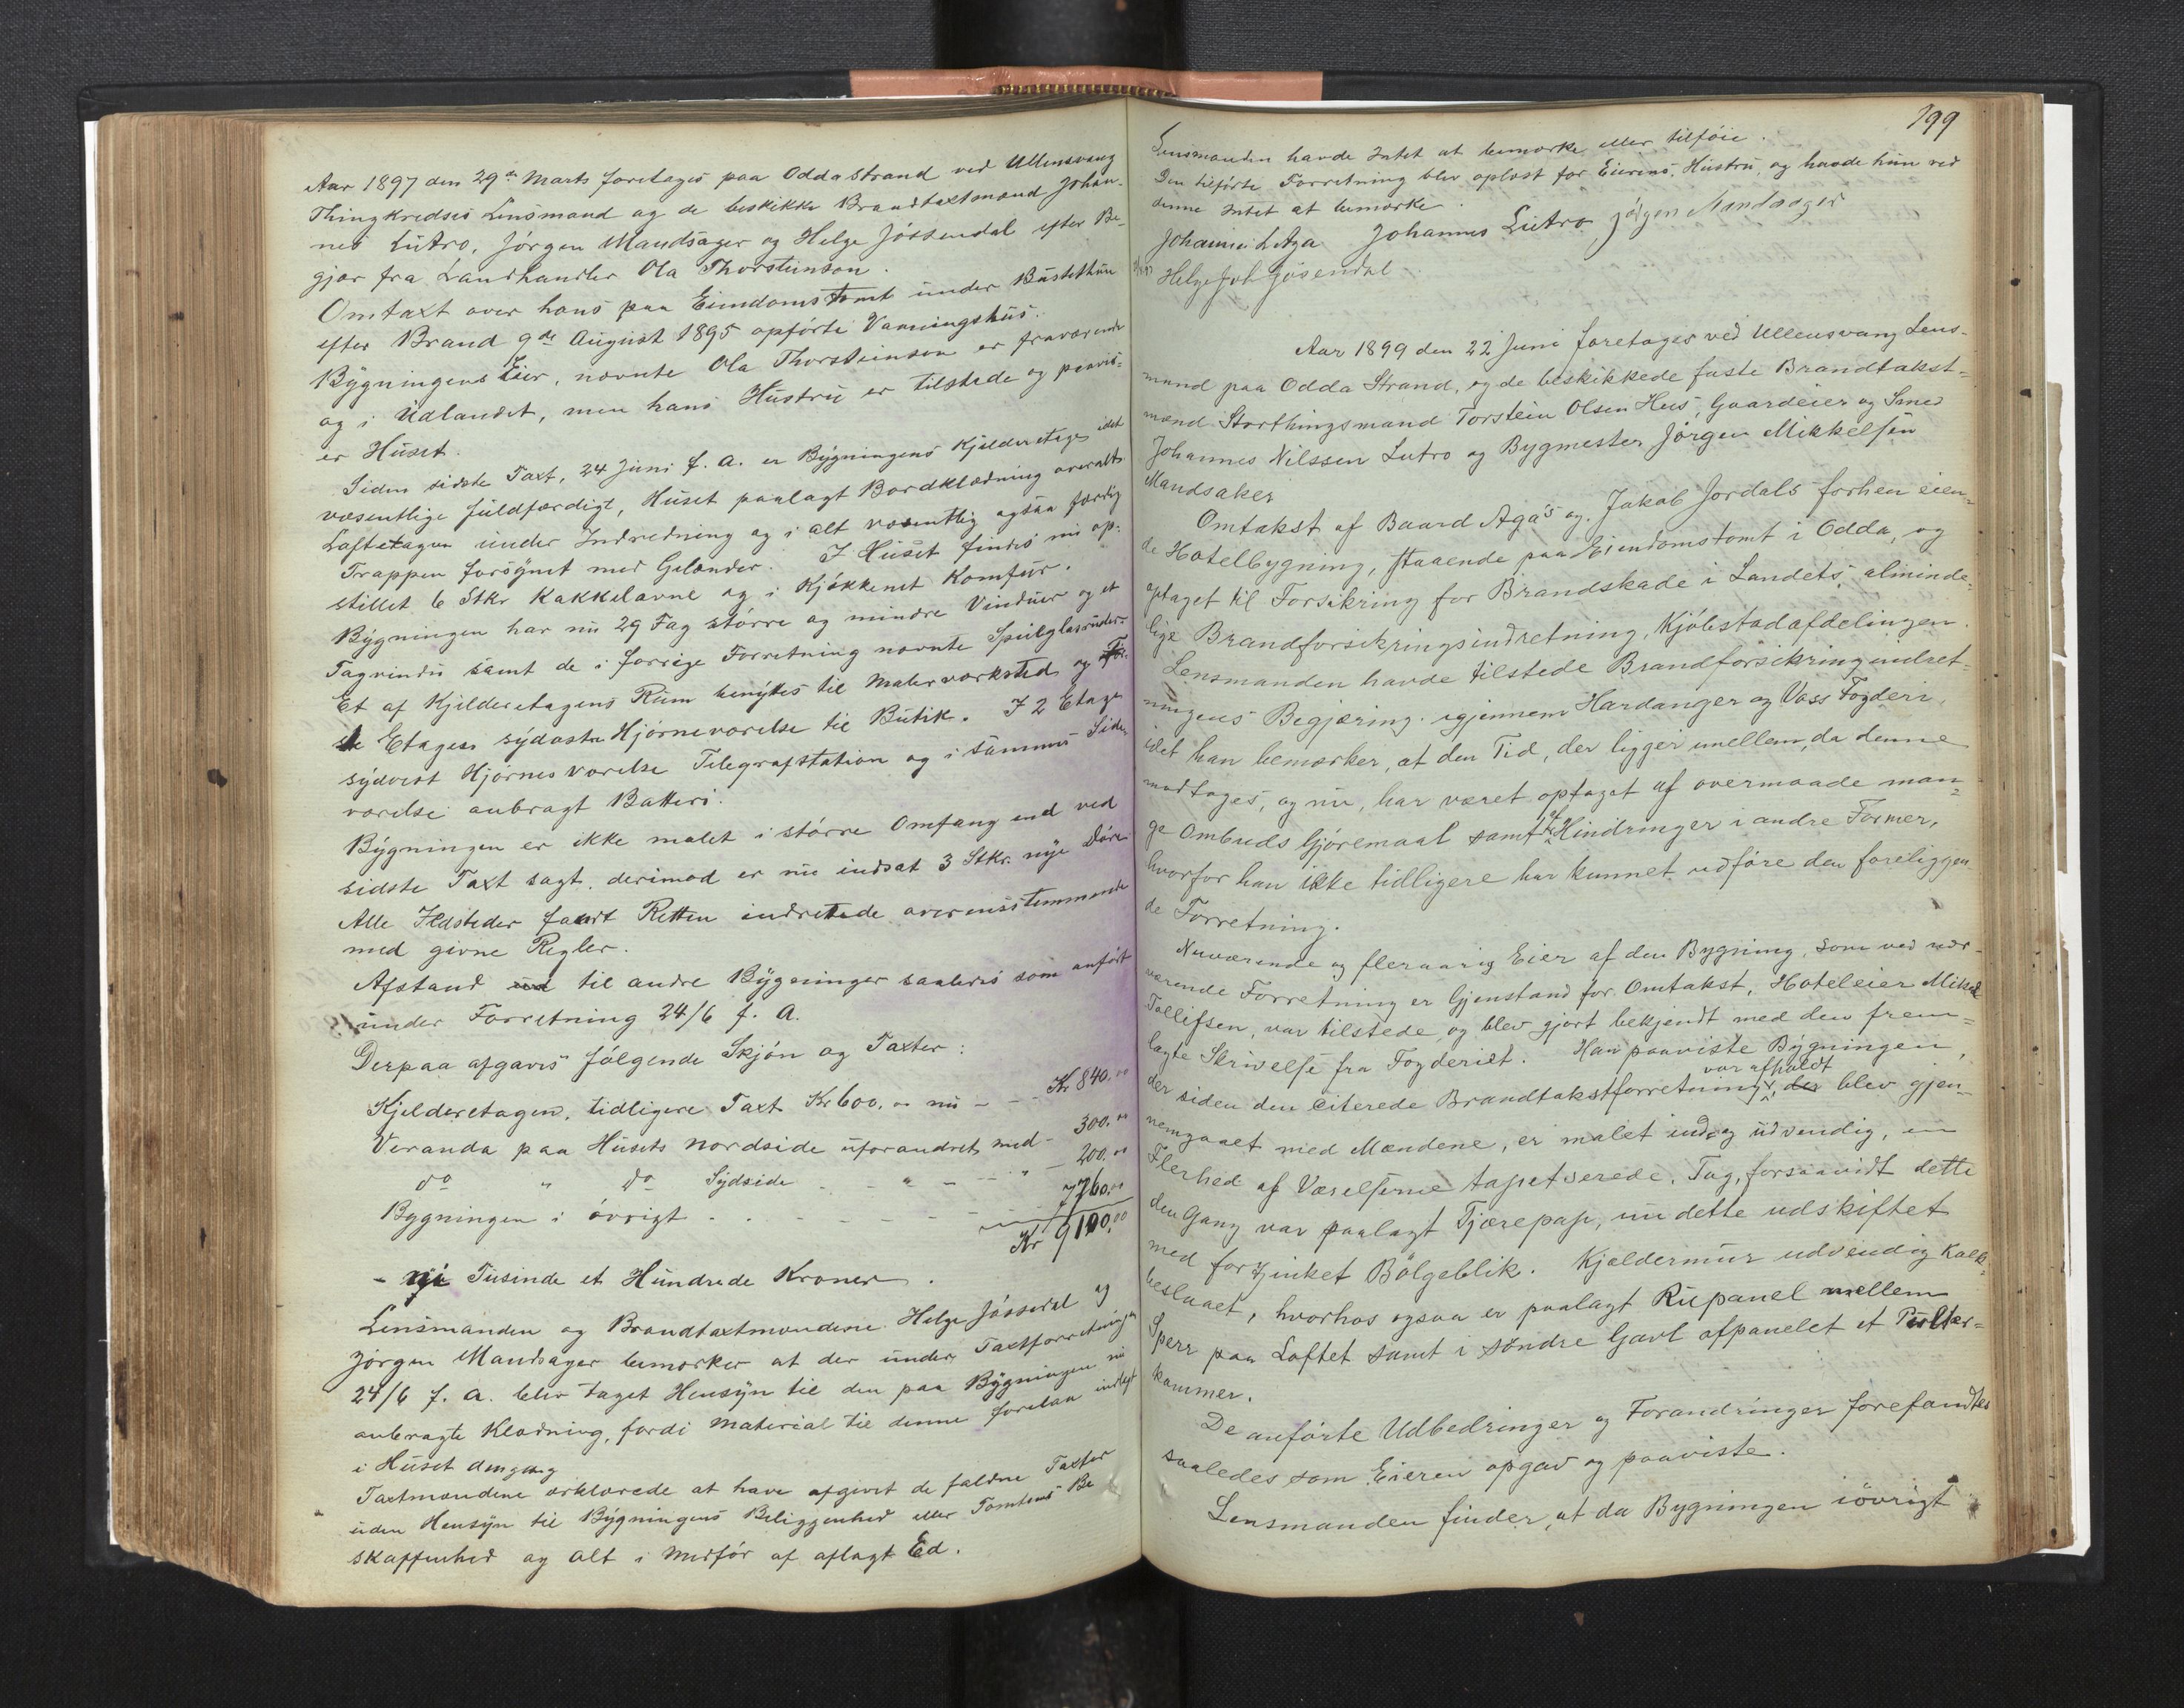 Aar 1897 den 29de Marts foretages paa Odda Strand ved Ullensvang
Thingkredses Lensmand og de beskikke Brandtaxtmænd Johan-
nes Lutro, Jørgen Mandsager og Helge Jøssendal efter Be-
gjær fra Landhandler Ola Thorsteinson.
Omtaxt over hans paa Eiendomstomt under Bustethun
efter Brand 9de August 1895 opførte Vaaningshus.
Bygningens Eier, nævnte Ola Thorsteinson er fraværende
og i Udlandet, men hans Hustru er tilstede og paavis-
er Huset.
Siden sidste Taxt, 24 Juni f. A. er Bygningens Kjelderetage idet
væsentlige fuldfærdigt, Huset paalagt Bordklædning overalt
Loftetagen under Indredning og i alt væsentlig ogsaa færdig
Trappen forsynet med Gelænder. I Huset findes nu op-
stillet 6 Stkr Kakkelovne og i Kjøkkenet Komfur.
Bygningen har nu 29 Fag større og mindre Vinduer og et
Tagvindu samt de i forrige Forretning nævnte Speilglasruder.
Et af Kjelderetagens Rum benyttes til Malerværksted og før-
ste Etages sydøstre Hjørneværelse til Butik. I 2 Etage
sydvest Hjørnesværelse Telegrafstation og i sammes Side-
værelse anbragt Batteri.
Bygningen er ikke malet i større Omfang end ved
sidste Taxt sagt, derimod er nu indsat 3 Stkr. nye Døre
Alle Ildsteder fandt Retten indrettede overensstemmende
med givne Regler.
Afstand til andre Bygninger saaledes som anført
under Forretning 24/6 f. A.
Derpaa afgaves følgende Skjøn og Taxter:
Kjelderetagen, tidligere Taxt Kr 600,00 nu - - - Kr 840,00
Veranda paa Husets Nordside uforandret med - 300,00
do " do Sydside - - " - - - " - 200,00
Bygningen i øvrigt - - - - - - - 7760,00
Kr 9100,00
- ni Tusinde et Hundrede Kroner.
Lensmanden og Brandtaxtmændene Helge Jøssendal og
Jørgen Mandsager bemærker at der under Taxtforretningen
24/6 f. A. blev taget Hensyn til den paa Bygningen nu
anbragte Klædning, fordi Material til denne forelaa indlagt
i Huset dengang
Taxtmændene erklærede at have afgivet de faldne Taxter
uden Hensyn til Bygningens Beliggenhed eller Tomtens Be
skaffenhed og Alt i Medfør af aflagt Ed.
199
Lensmanden havde Intet at bemærke eller tilføie.
Den tilførte Forretning blev oplæst for Eierens Hustru, og havde hun ved
denne Intet at bemærke.
Johannes L Aga Johannes Lutro Jørgen Mandsager
Helge Joh Jøsendal
Aar 1899 den 22 Juni foretages ved Ullensvang Lens-
mand paa Odda Strand, og de beskikkede faste Brandtakst-
mænd Storthingsmand Torstein Olsen Hus, Gaardeier og Smed
Johannes Nilssen Lutro og Bygmester Jørgen Mikkelsen
Mandsaker
Omtakst af Baard Aga's og Jakob Jordals forhen eien-
de Hotelbygning, staaende paa Eiendomstomt i Odda, og
optaget til Forsikring for Brandskade i Landets alminde-
lige Brandforsikringsindretning, Kjøbstadafdelingen.
Lensmanden havde tilstede Brandforsikringindret-
ningens Begjæring igjennem Hardanger og Voss Fogderi,
idet han bemærker, at den Tid, der ligger imellem, da denne
modtoges, og nu, har været optaget af overmaade man-
ge Ombuds Gjøremaal samt af Hindringer i andre Former,
hvorfor han ikke tidligere har kunnet udføre den foreliggen
de Forretning.
Nuværende og fleraarig Eier af den Bygning, som ved nær-
værende Forretning er Gjenstand for Omtakst, Hoteleier Mikal
Tollefsen, var tilstede og blev gjort bekjendt med den frem-
lagte Skrivelse fra Fogderiet. Han paaviste Bygningen,
var afholdt
der siden den citerede Brandtakstforretning, der blev gjen-
nemgaaet med Mændene, er malet ind- og udvendig, en
Flerhed af Værelserne tapetserede. Tag, forsaavidt dette
den Gang var paalagt Tjærepap, nu dette udskiftet
med forzinket Bølgeblik. Kjeldermur udvendig Kalk-
beslaaet, hvorhos ogsaa er paalagt Rupanel mellem
Sperr paa Loftet samt i søndre Gavl afpanelet et Pulter-
kammer.
De anførte Udbedringer og Forandringer forefandtes
saaledes som Eieren opgav og paaviste.
Lensmanden finder, at da Bygningen iøvrigt